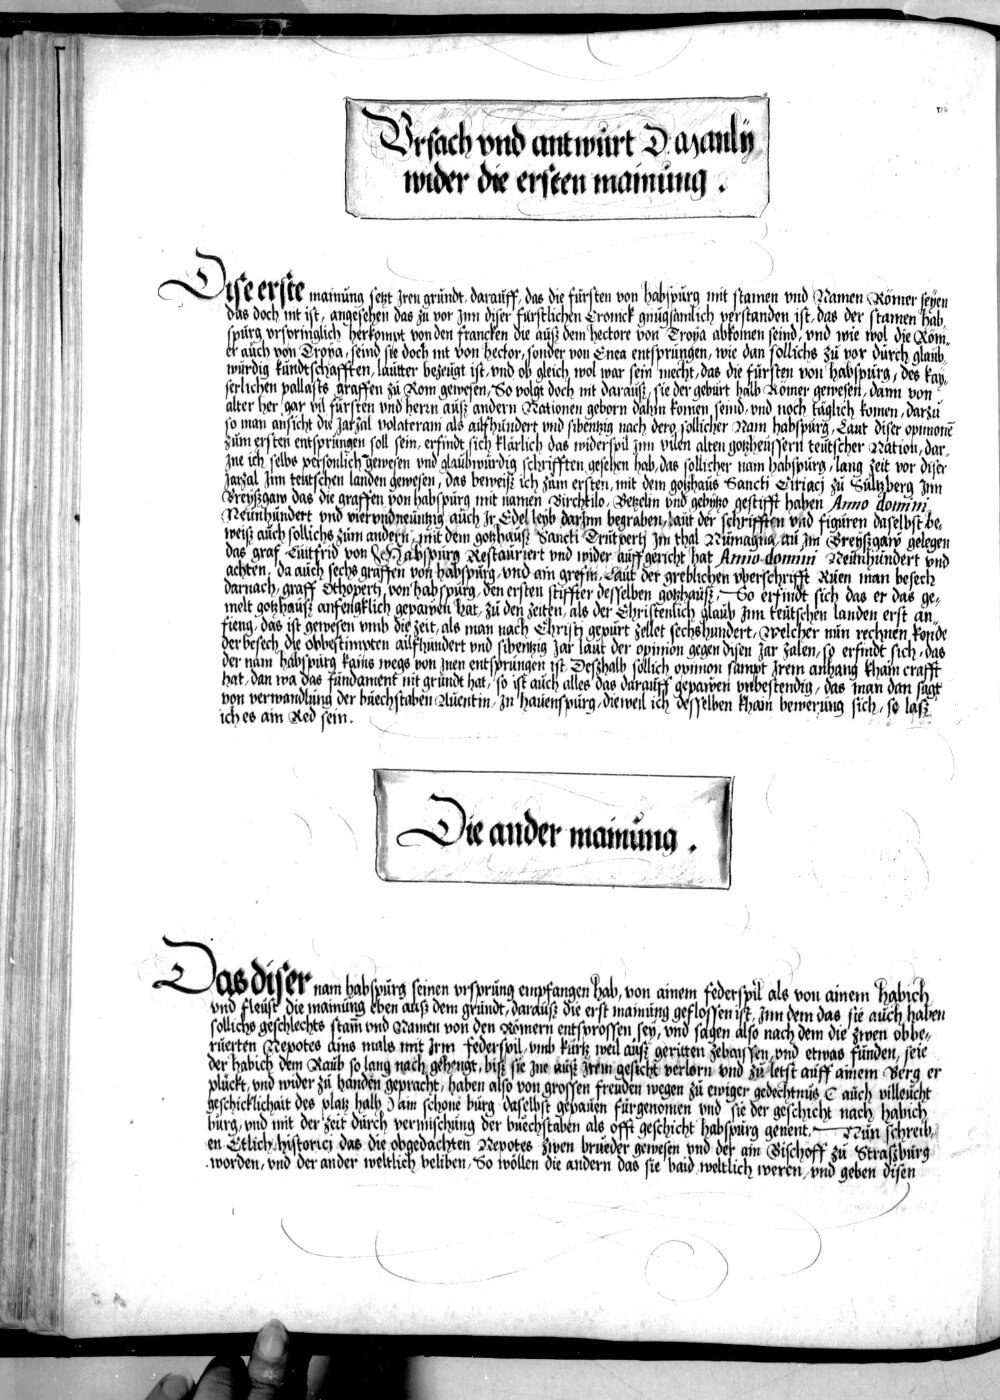 Vrsach vnd antwurt D. Manlÿ
wider die ersten mainung .
Dise erste mainung setzt Jren grundt, darauff, das die fürsten von habspurg mit stamen vnd Namen Römer seyen
das doch nit ist, angesehen das zu vor Jnn diser fürstlichen Cronick gnügsamlich verstanden ist, das der stamen hab,
spurg vrspringlich herkompt von den francken die auß dem hectore von Troya abkomen seind, vnd wie wol die Röm,
er auch von Troya, seind sie doch nit von hector, sonder von Enea entsprungen, wie dan sollichs zu vor durch glaub,
würdig kundtschafften, lautter bezeugt ist, vnd ob gleich wol war sein mecht, das die fürsten von habspurg, des kay,
serlichen pallasts graffen zu Rom gewesen, So volgt doch nit darauß, sie der geburt halb Römer gewesen, dann von
alter her gar vil fürsten vnd herrn auß andern Nationen geborn dahin komen seind, vnd noch täglich komen, darzu
so man ansicht die Jarzal volaterani als ailfhundert vnd sibentzig nach dero sollicher Nam habspurg, Laut diser opinione
zum ersten entsprungen soll sein, erfindt sich klärlich das widerspil Jnn vilen alten gotzheussern teutscher Nation, dar,
Jne ich selbs personlich gewesen vnd glaubwürdig schrifften gesehen hab, das sollicher nam habspurg, lang zeit vor diser
Jarzal Jnn teutschen landen gewesen, das beweiß ich zum ersten, mit dem gotzhaus Sancti Ciriaci zu Sultzberg Jnn
Breyßgaw das die graffen von habspurg mit namen Birchtilo, Betzelin vnd gebytzo gestifft haben Anno domini
Neunhundert vnd vierundneuntzig auch Jr Edel leyb darJnn begraben, laut der schrifften vnd figuren daselbst be,
weiß auch sollichs zum andern, mit dem gotzhauß Sancti Trutperti Jm thal Numagna, au Jm Breyßgaw gelegen
das graf Luitfrid von Habspurg Restauriert vnd wider auffgericht hat Anno domini Neunhundert vnd
achten, da auch sechs graffen von habspurg, vnd ain grefin, Laut der greblichen vberschrifft Ruen man besech
darnach, graff Othoperti, von habspurg, den ersten stiffter desselben gotzhauß, So erfindt sich das er das ge,
melt gotzhauß anfengklich gepawen hat, zu den zeiten, als der Christenlich glaub Jnn teutschen landen erst an,
fieng, das ist gewesen vmb die zeit, als man nach Christj gepurt zellet sechshundert, Welcher nun rechnen konde
der besech die obbestimpten ailfhundert vnd sibentzig Jar laut der opinion gegen disen Jar zalen, so erfindt sich, das
der nam habspurg kains wegs von Jnen entsprungen ist. Deßhalb sollich opinion sampt Jrem anhang khain crafft
hat, dan wa das fundament nit grundt hat, so ist auch alles das darauff gepawen vnbestendig, das man dan sagt
von verwandlung der buechstaben Auentin, Jn hauenspurg, dieweil ich desselben khain bewerung sich, so laß
ich es ain Red sein.
Die ander mainung .
Das diser nam habspurg seinen vrsprung empfangen hab, von ainem federspil als von ainem habich
vnd fleust die mainung eben auß dem grundt, darauß die erst mainung geflossen ist, Jnn dem das sie auch haben
sollichs geschlechts stam vnd Namen von den Römern entsprossen sey, vnd sagen also nach dem die zwen obbe,
ruerten Nepotes ains mals mit Jrm federspil, vmb kurtz weil auß geritten zebayssen, vnd etwas funden, seie
der habich dem Raub so lang nach gehengt, biß sie Jne auß Jrem gesicht verlorn vnd zu letst auff ainem Berg er
plückt, vnd wider zu handen gepracht, haben also von grossen freuden wegen zu ewiger gedechtnus ( auch villeucht
geschicklichait des platz halb ) am schöne burg daselbst gepauen fürgenomen vnd sie der geschicht nach habich
burg, vnd mit der zeit durch vermischung der buechstaben als offt geschicht habspurg genent. Nun schreib,
en Etlich historici das die obgedachten Nepotes zwen brueder gewesen vnd der ain Bischoff zu Straßburg
worden, vnd der ander weltlich beliben, So wöllen die andern das sie baid weltlich weren, vnd geben disen